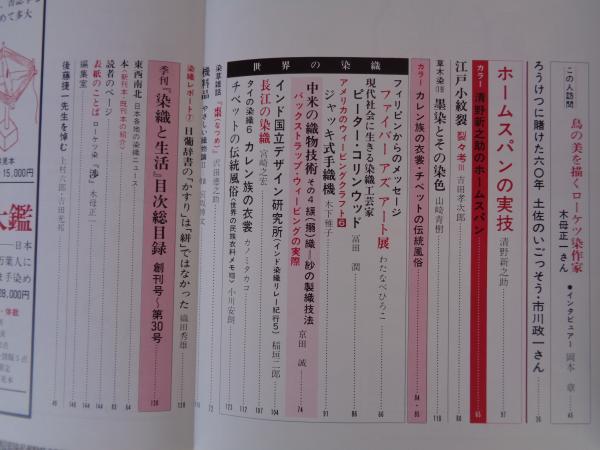 この人訪問
鳥の美を描くローケツ染作家
木母正一さん
●インタビュアー 岡本 章
ろうけつに賭けた六〇年 土佐のいごっそう・市川政一さん
ホームスパンの実技
清野新之助
97
カラー 清野新之助のホームスパン
65
江戸小紋裂
裂々考
吉田孝次郎
88
草木染
墨染とその染色
山崎青樹
118
カラー カレン族の衣裳・チベットの伝統風俗
84・85
世界の染織
フィリピンからのメッセージ
ファイバー アズ アート展
わたなべひろこ
66
現代社会に生きる染織工芸家
ピーター・コリンウッド
冨田 潤
86
アメリカのウィービングクラフト⑥
ジャッキ式手織機
木下雅子
91
中米の織物技術 その4 綟(捩)織―紗の製織技法
バックストラップ・ウィービングの実際
京田 誠
74
インド国立デザイン研究所(インド染織リレー紀行5)
稲垣二郎
104
長江の染織
宮崎之宏
107
タイの染織6 カレン族の衣裳
カノミタカコ
112
チベットの伝統風俗(世界の民族衣料メモ⑩)
小川安朗
123
染草雑話
『棗(なつめ)』
沢田徳之助
72
機料品
やさしい織物講
染織レポート⑦ 日葡辞書の「かすり」は「絣」ではなかった
織田秀雄
128
季刊『染織と生活』目次総目録 創刊号~第30号
138
東西南北
日本各地の染織ニュース
本(新刊本・既刊本の紹介)
読者のページ
表紙のことば
ローケツ染『渉』
木母正一
編集室
後藤捷一先生を悼む
上村六郎・吉田光邦
15,000円
大鑑
日本
万葉人に
は手染め
28,000円